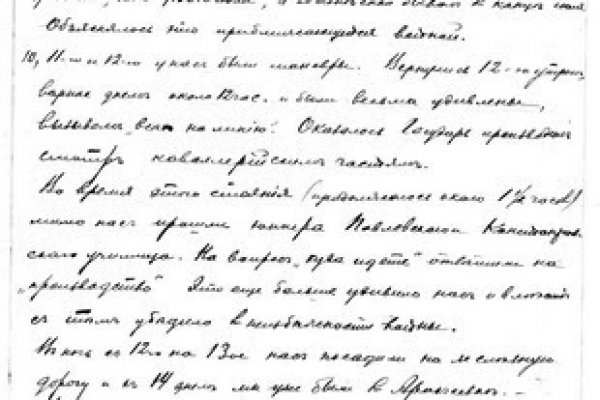 Объяснялось это приближающейся войной.
10, 11-го и 12-го у нас были маневры. Вернулись 12-го утром,
вернее днем около 12 час. и были весьма удивлены,
вызывом „всех на линию". Оказалось Государь производил
смотр кавалерийским частям.
Во время этого стояния (продолжалось около 1½ часов)
мимо нас прошли юнкера Павловского
ского училища. На вопрос „куда идете" ответили на
„производство" Это еще больше удивило нас и
с тем убедило в неизбежности войны.
В ночь с 12го на 13ое нас посадили на железную
дорогу и в 14 днем мы уже были в